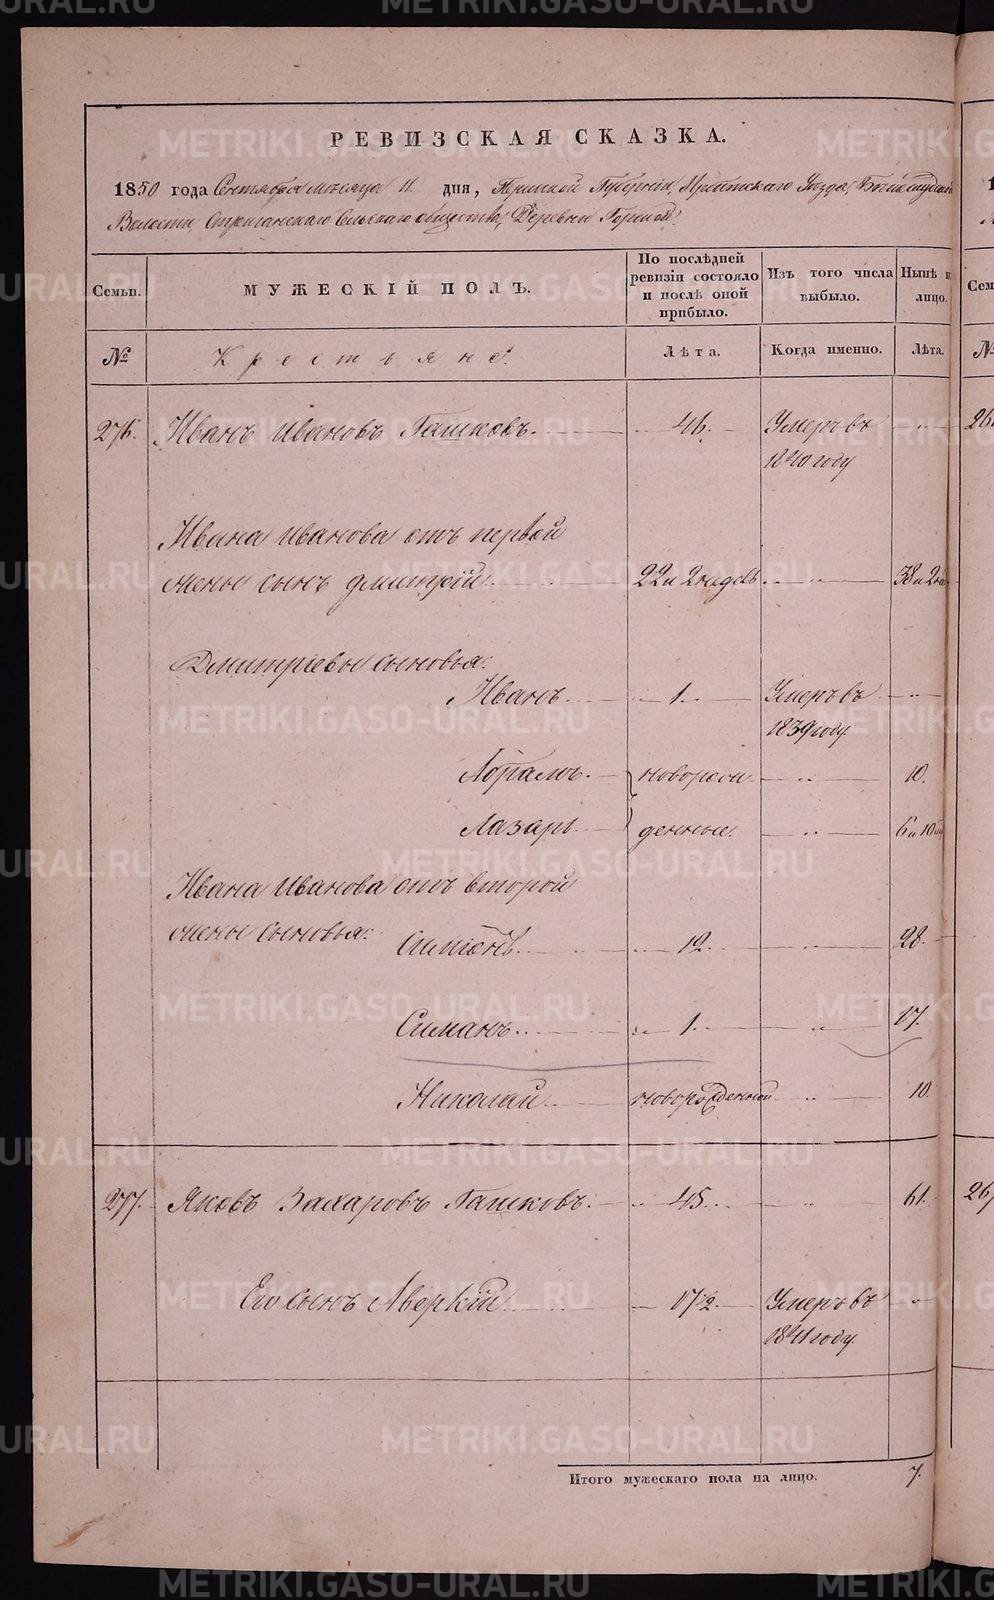 РЕВИЗСКАЯ СКАЗКА.
1850 года Сентября месяца 11 дня, Пермской Губернии, Ирбитского Уезда,
Волости, Стриганского Сельского общества, Деревни Горной.
Семьи. МУЖЕСКІЙ ПОЛЪ. По послѣдней ревизіи состояло и послѣ оной прибыло. Изъ того числа выбыло. Нынѣ лицо. Сем
№ Крестьяне. Лѣта. Когда именно. Лѣта. №
276. Иванъ Ивановъ Гашковъ. 46. Умеръ въ
1840 году
Ивана Иванова отъ первой
жены сынъ Дмитрій 22 и 2 недел 38 и 2
Дмитріевы сыновья:
Иванъ 1. Умеръ въ
1839 году
Абрамъ новорож 10.
Лазарь денные. 6 и 10
Ивана Иванова отъ второй
жены сыновья:
Симіонъ 12. 28.
Симанъ 1. 17.
Николай новорожденной 10.
277. Яковъ Захаровъ Гашковъ. 45. 61.
Его сынъ Аверкій 17½. Умеръ въ
1841 году
Итого мужескаго пола на лицо. 7.
METRIKI.GASO-URAL.RU